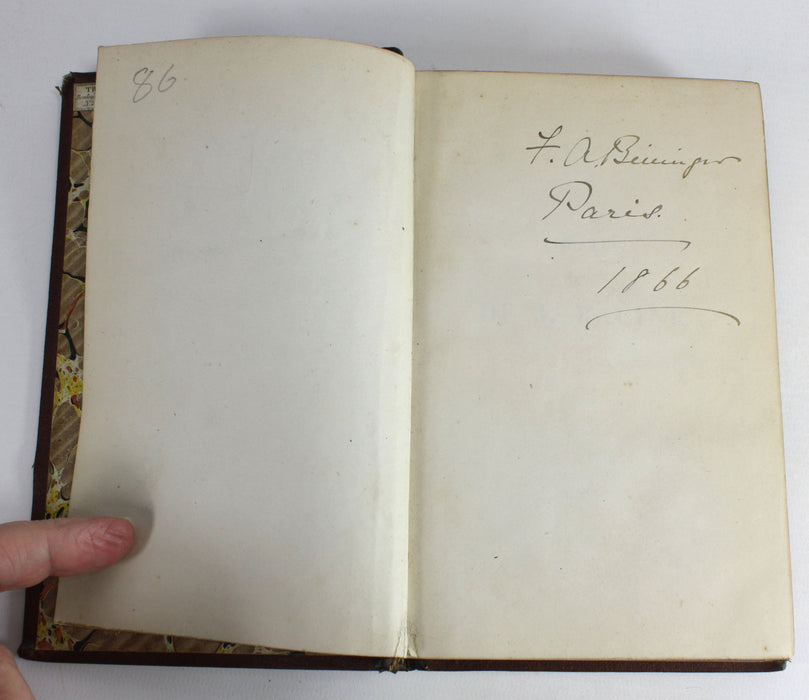 86
F. A. Bininger
Paris.
1866